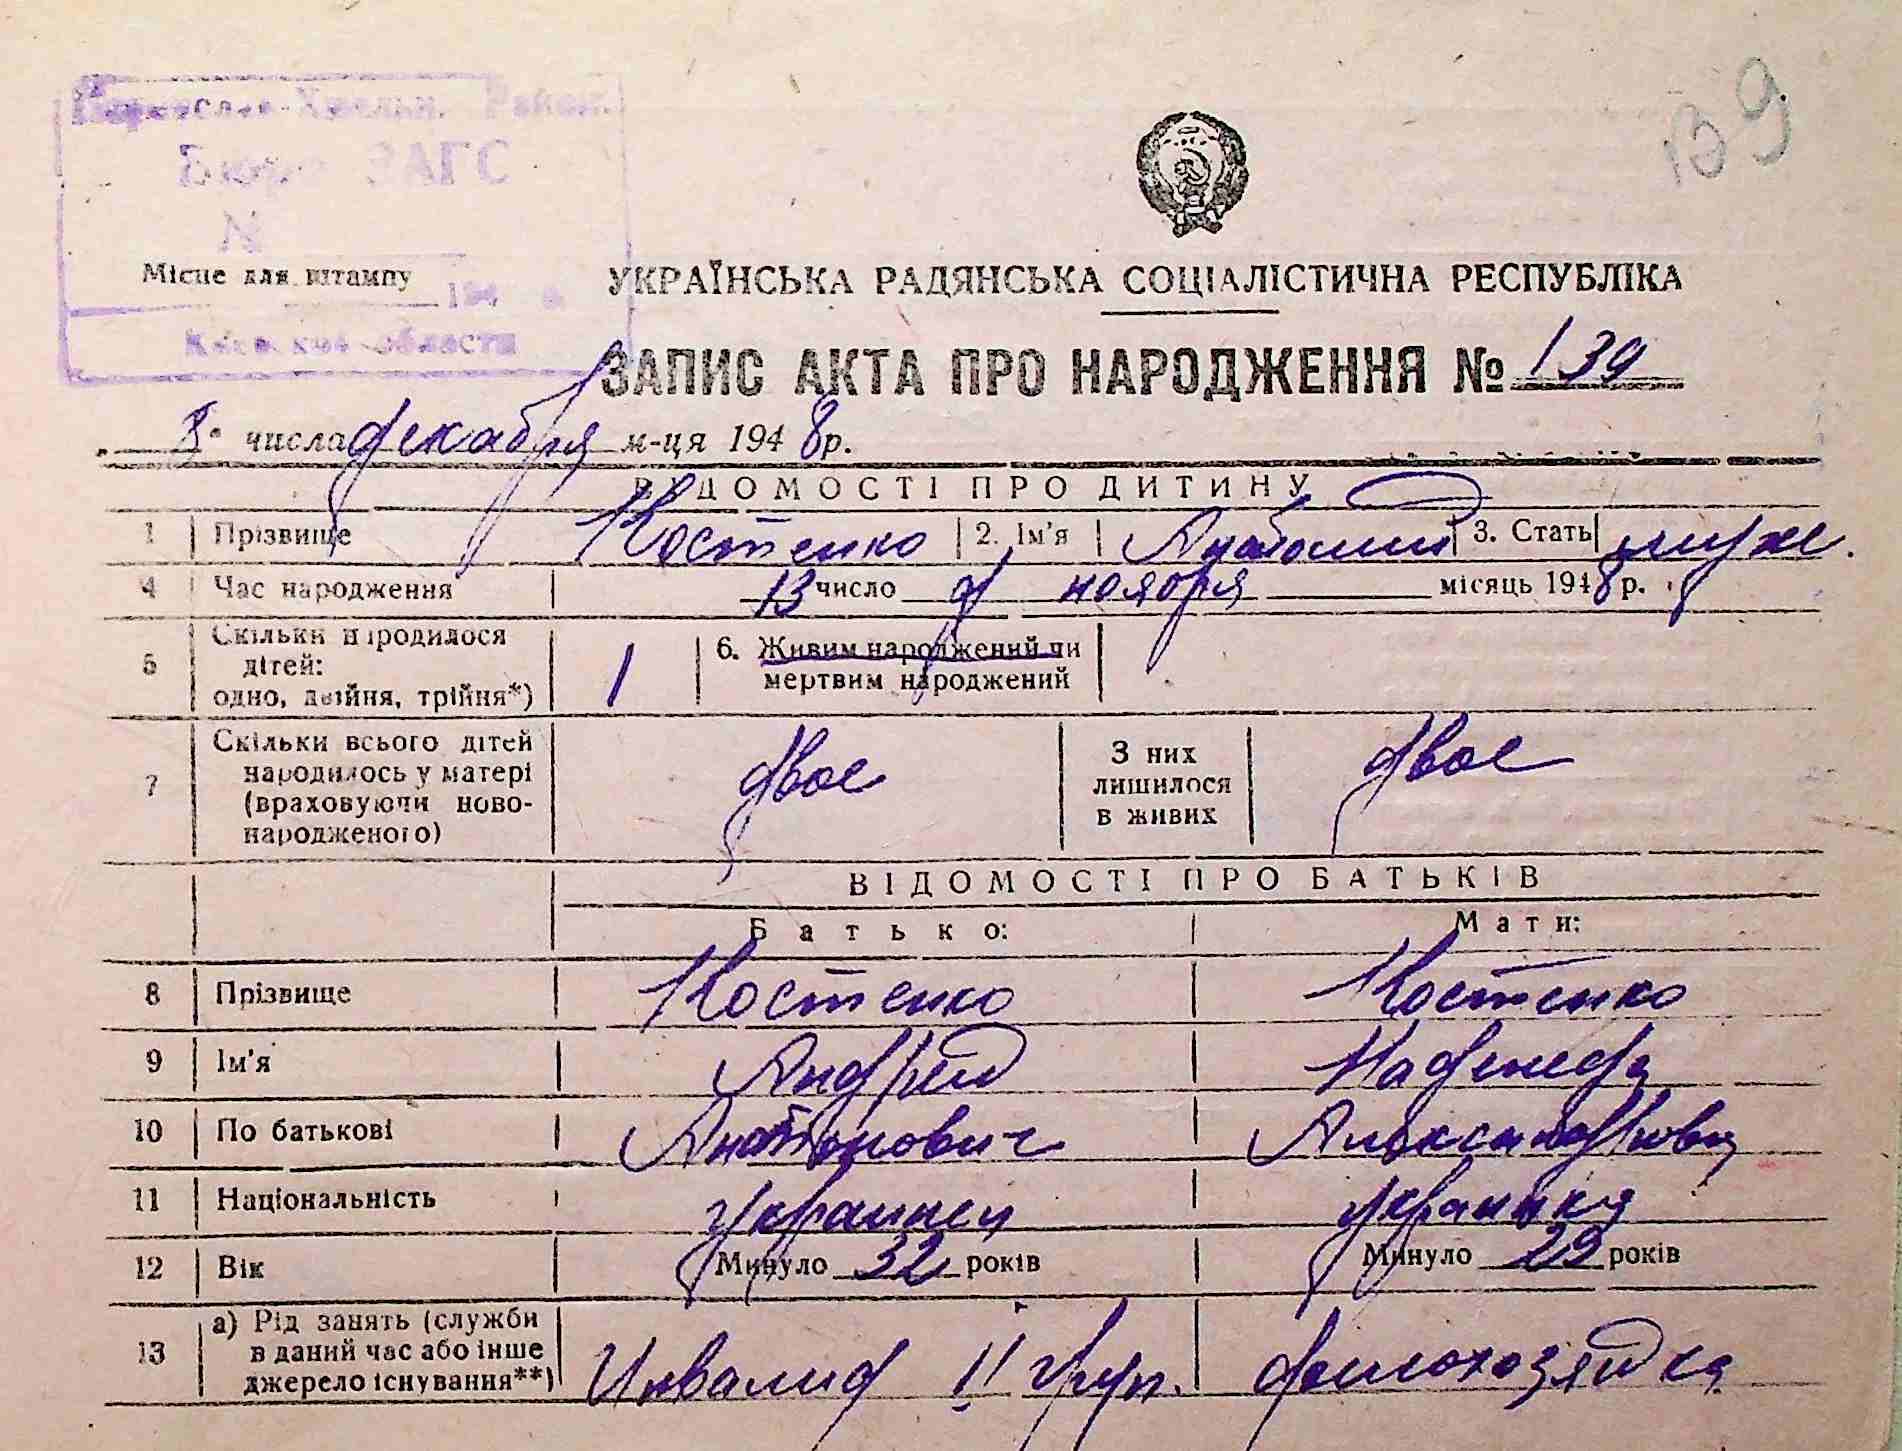 139
Бюро ЗАГС
N
Місце для штампу
194
области
УКРАЇНСЬКА РАДЯНСЬКА СОЦІАЛІСТИЧНА РЕСПУБЛІКА
ЗАПИС АКТА ПРО НАРОДЖЕННЯ № 139
числа декабря м-ця 1948 р.
ВІДОМОСТІ ПРО ДИТИНУ
1 Прізвище Костенко 2. Ім'я Анатолий 3. Стать муж.
4 Час народження 13 число ноября місяць 1948 р.
5 Скільки народилося дітей: одно, двійня, трійня*) 1 6. Живим народжений чи мертвим народжений
7 Скільки всього дітей народилось у матері (враховуючи новонародженого) двое З них лишилося в живих двое
ВІДОМОСТІ ПРО БАТЬКІВ
Батько: Мати:
8 Прізвище Костенко Костенко
9 Ім'я Андрей Надежда
10 По батькові Антонович Александровна
11 Національність украинец украинка
12 Вік Минуло 32 років Минуло 29 років
13 а) Рід занять (служби в даний час або інше джерело існування**) Инвалид II груп. домохозяйка